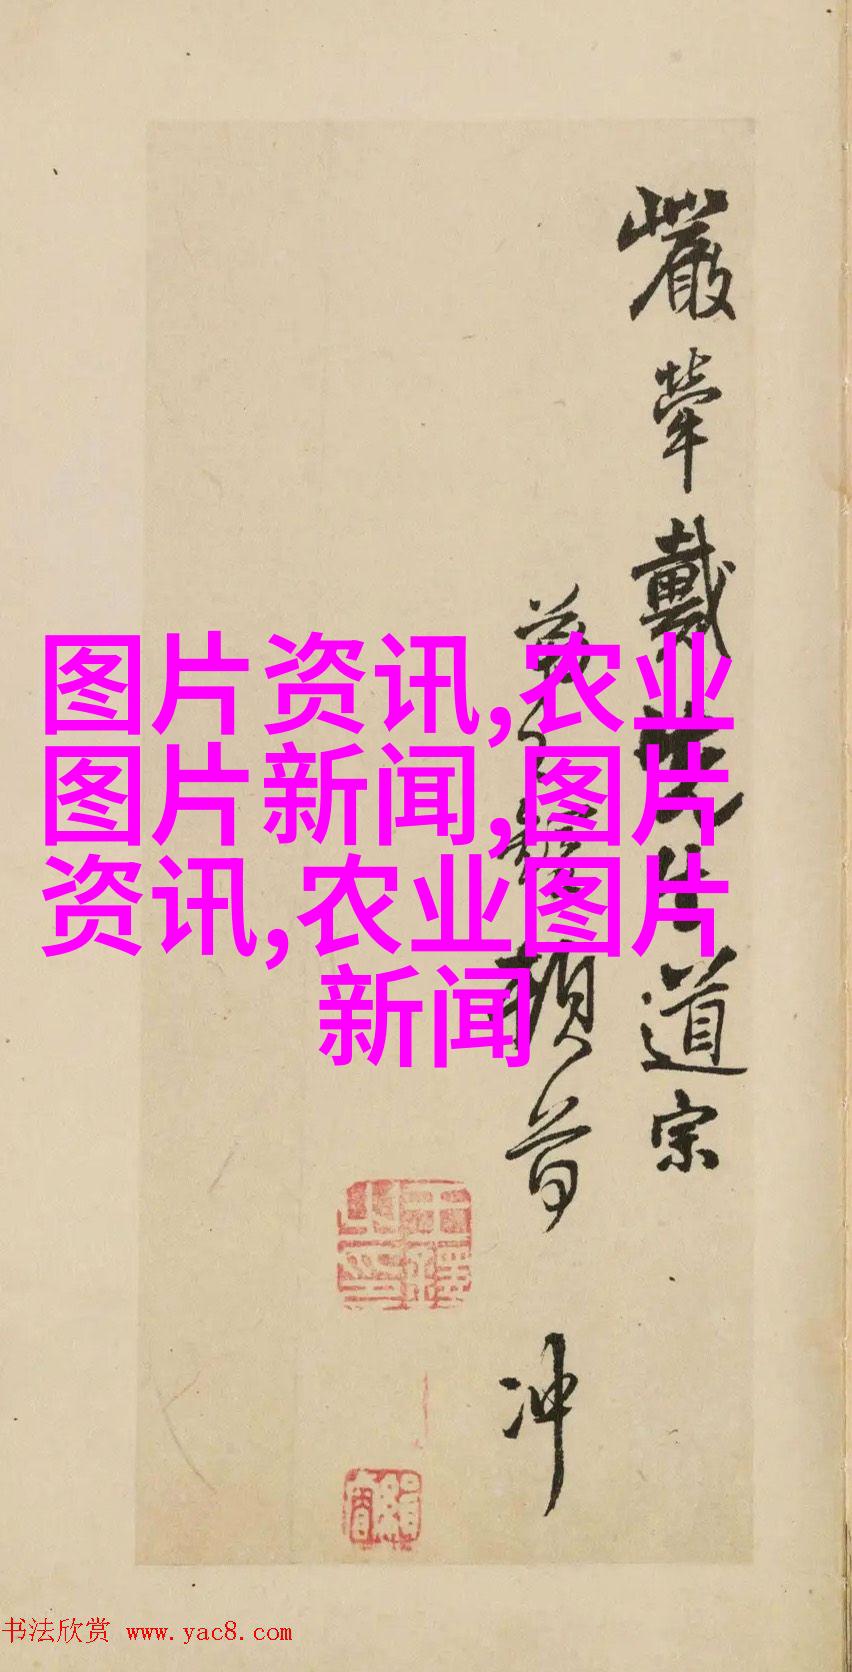 图片资讯,农业
图片新闻,图片
资讯,农业图片
新闻
嚴犖戴先生道宗
頓首 冲
书法欣赏 www.yac8.com